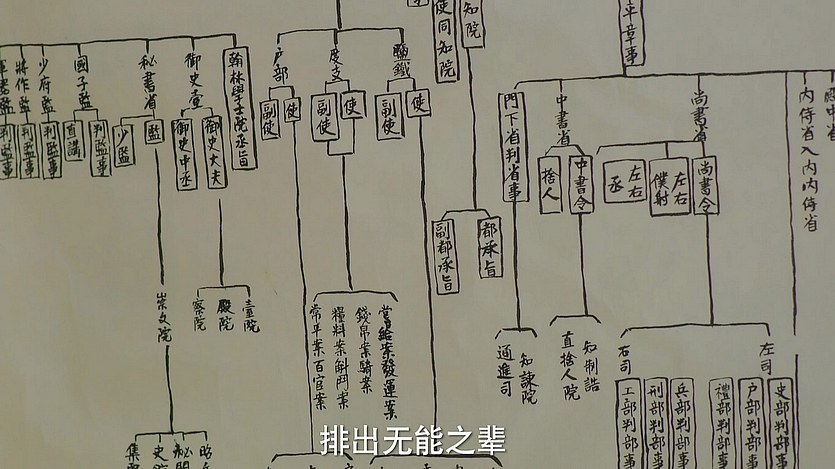 平章事
同知院
知院
殿中省
内侍省入内内侍省
尚書省
尚書令
左右
僕射
左右
丞
中書省
中書令
捨人
門下省判省事
鹽鐵
使
副使
度支
使
副使
户部
使
副使
翰林學士院承旨
御史臺
御史大夫
御史中丞
秘書省
監
少監
國子監
判監事
直講
少府監
判監事
將作監
判監事
判監事
都承旨
副都承旨
臺院
殿院
察院
崇文院
賞給案發運案
錢帛案騎案
糧料案斛鬥案
常平案百官案
知諫院
通進司
知制誥
直捨人院
左司
右司
吏部判部事
户部判部事
禮部判部事
兵部判部事
刑部判部事
工部判部事
排出无能之辈